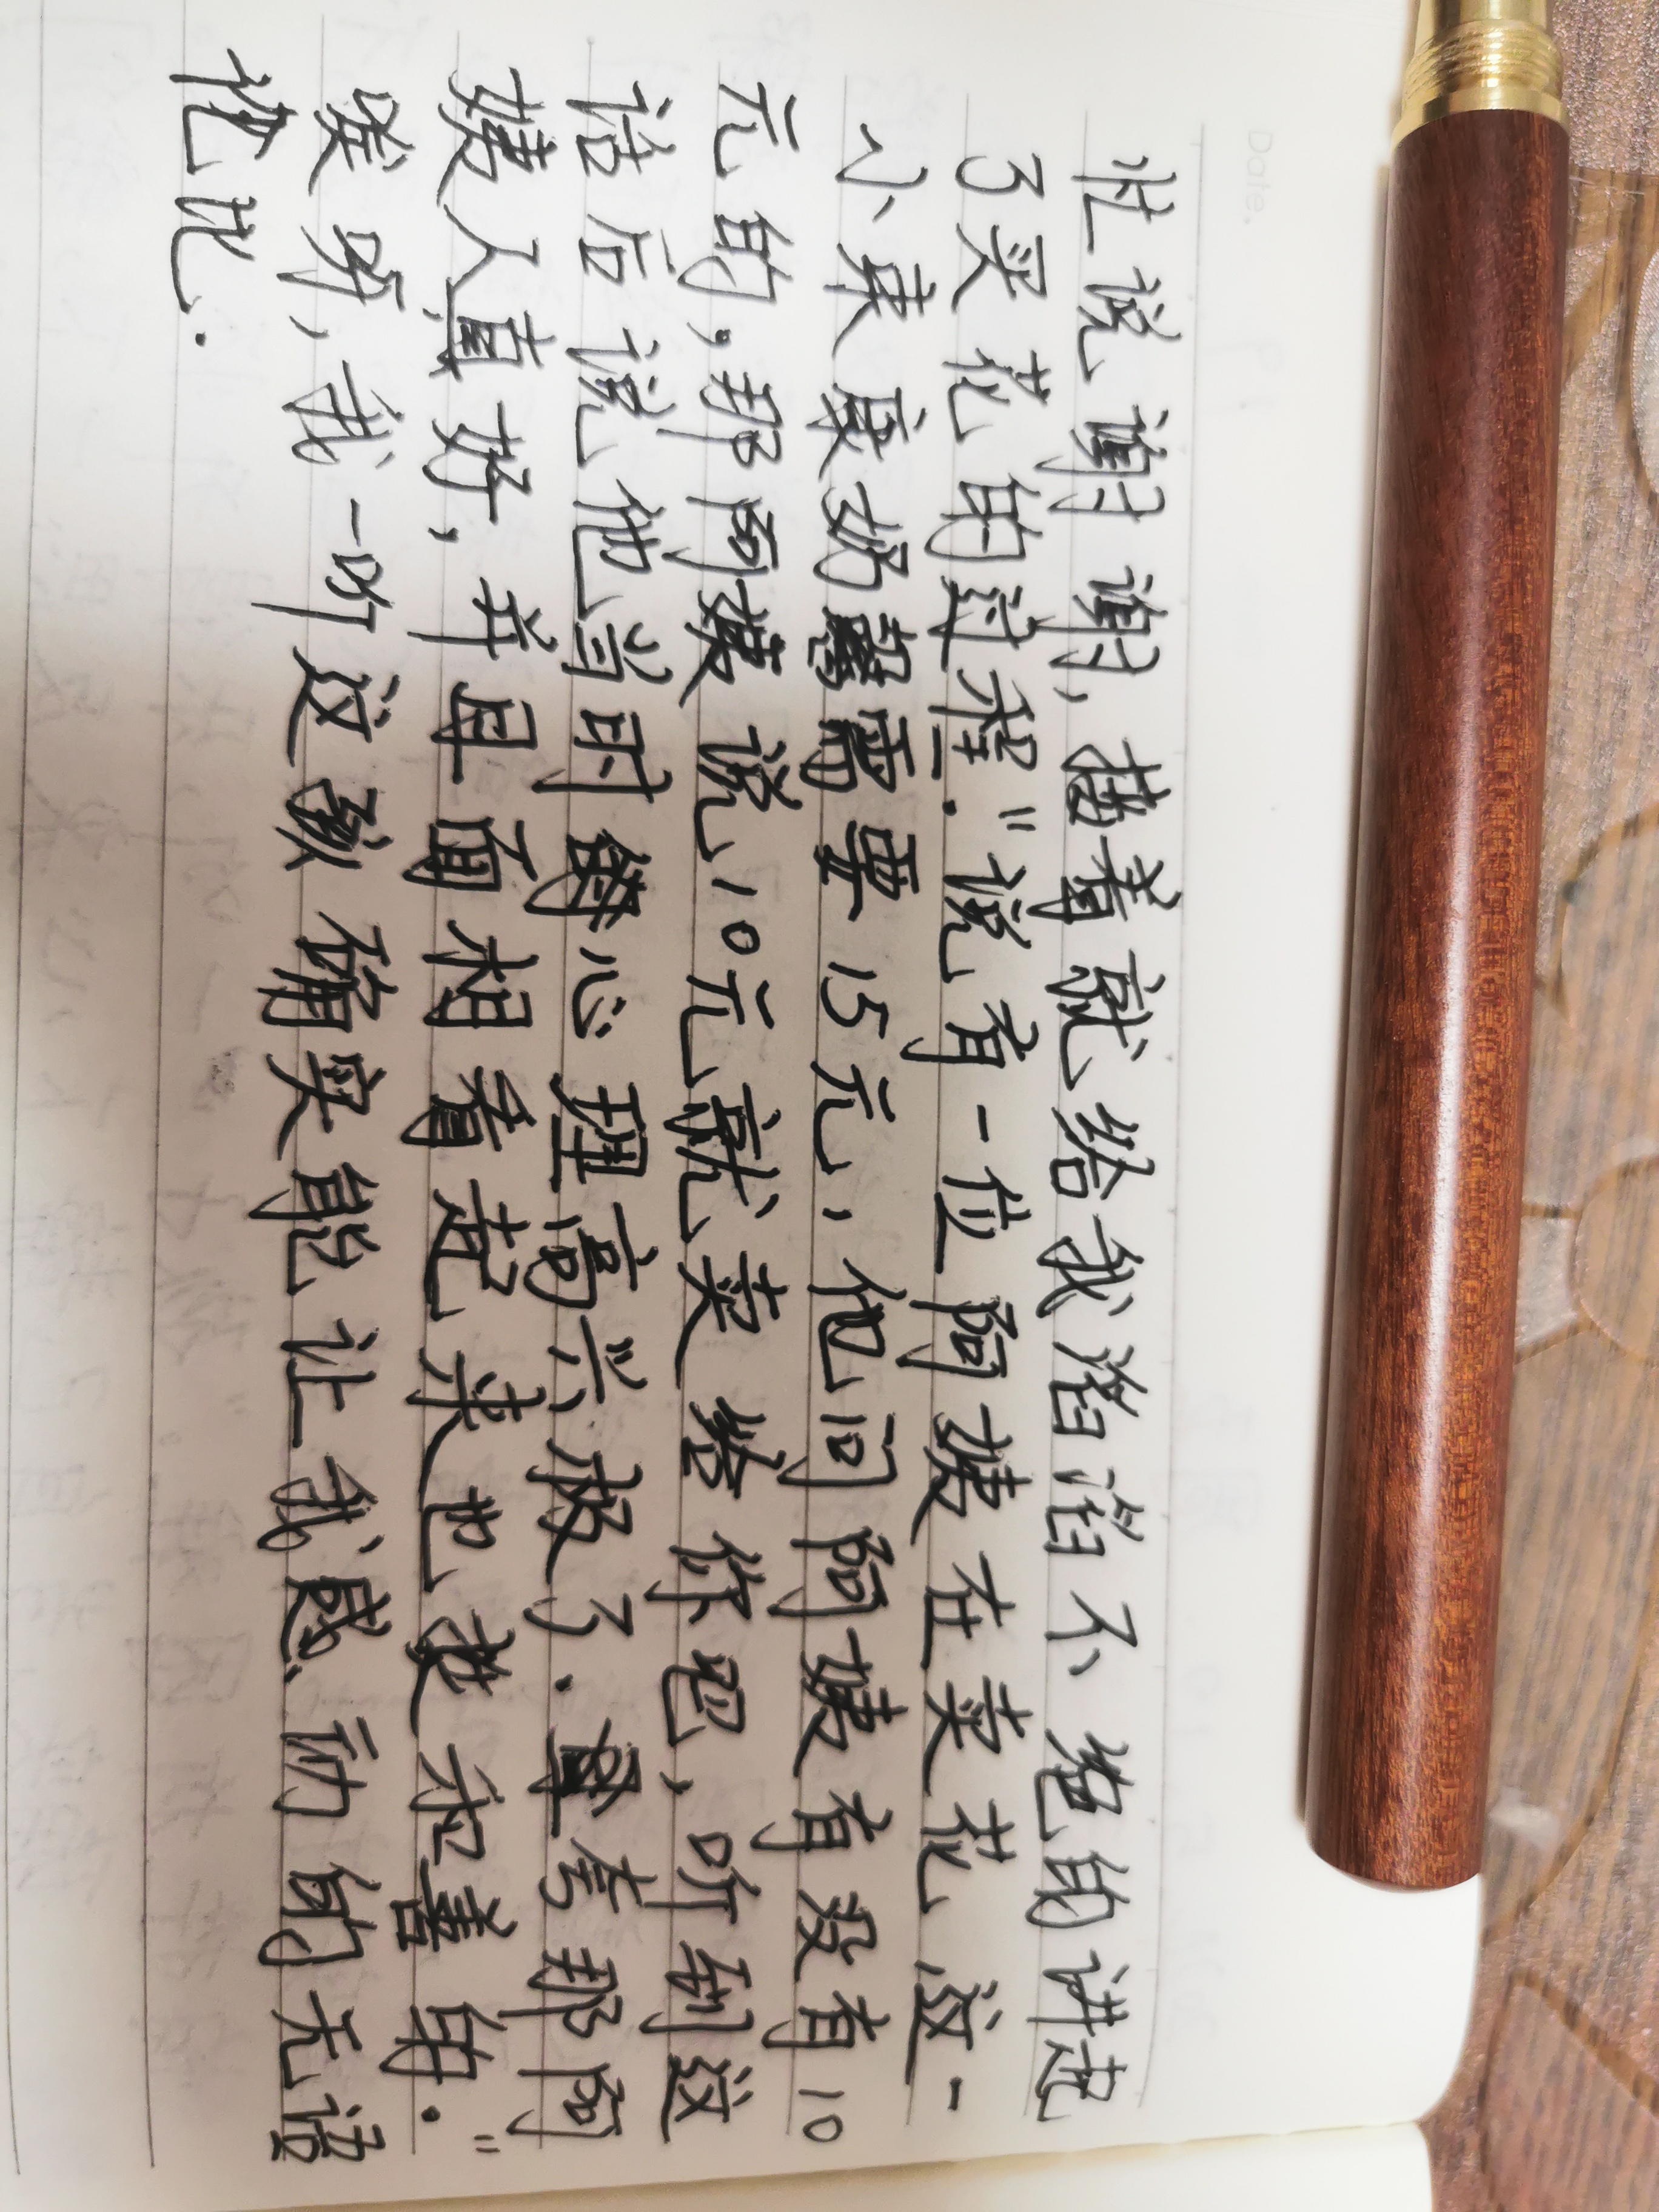 忙说谢谢,接着就给我滔滔不绝的讲起
了买花的过程."说有一位阿姨在卖花,这一
小束康奶馨需要15元,他问阿姨有没有10
元的,那阿姨说10元就卖给你吧,听到这
话后说他当时心理高兴极了.直夸那阿
姨人真好,并且面相看起来也挺和善的."
唉哟,我一听这经确实能让我感动的无语
伦比.